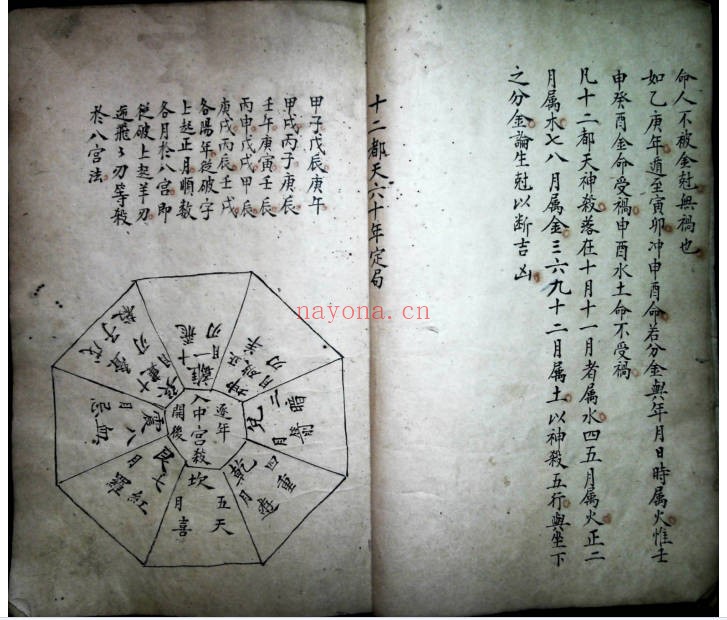 命人不被金尅無禍也
如乙庚年遁至寅卯冲申酉命若分金與年月日時属火惟壬
申癸酉金命受禍申酉水土命不受禍
凡十二都天神殺落在十月十一月者属水四五月属火正二
月属木七八月属金三六九十二月属土以神殺五行與坐下
之分金論生尅以断吉凶
十二都天六十年定局
甲子戊辰庚午
甲戌丙子庚辰
壬午庚寅壬辰
丙申戊戌甲辰
庚戌丙辰壬戌
各陽年從破字
上起正月順数
各月於八宫即
從破上起羊刃
遊飛刃等殺
於八宫法
逐年
入中宫殺
開後
離十一月飛刃
坤
羊刃
兌二月暗
乾四月重遊
坎五月天喜
艮七月紅羅
震八月血忌
巽十
nayona.cn